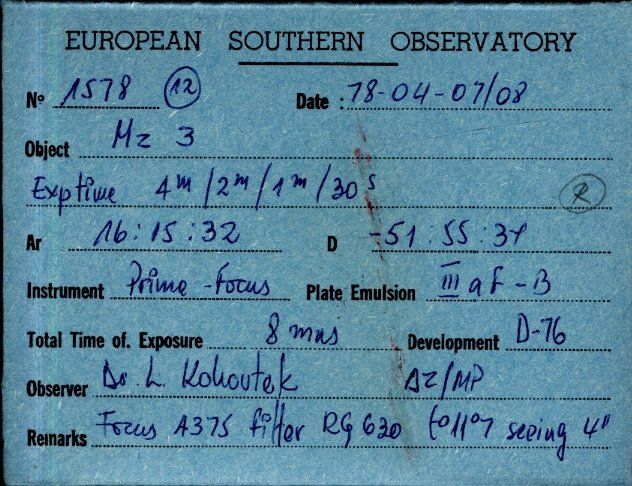 EUROPEAN SOUTHERN OBSERVATORY
Nº 1578 12 Date : 78-04-07/08
Object Mz 3
Exptime 4m / 2m / 1m / 30s R
Ar 16:15:32 D -51:55:37
Instrument Prime-Focus Plate Emulsion III aF-B
Total Time of. Exposure 8 mns Development D-76
Observer Dr. L. Kohoutek AZ/MP
Remarks Focus A375 filter RG 630 seeing 4"